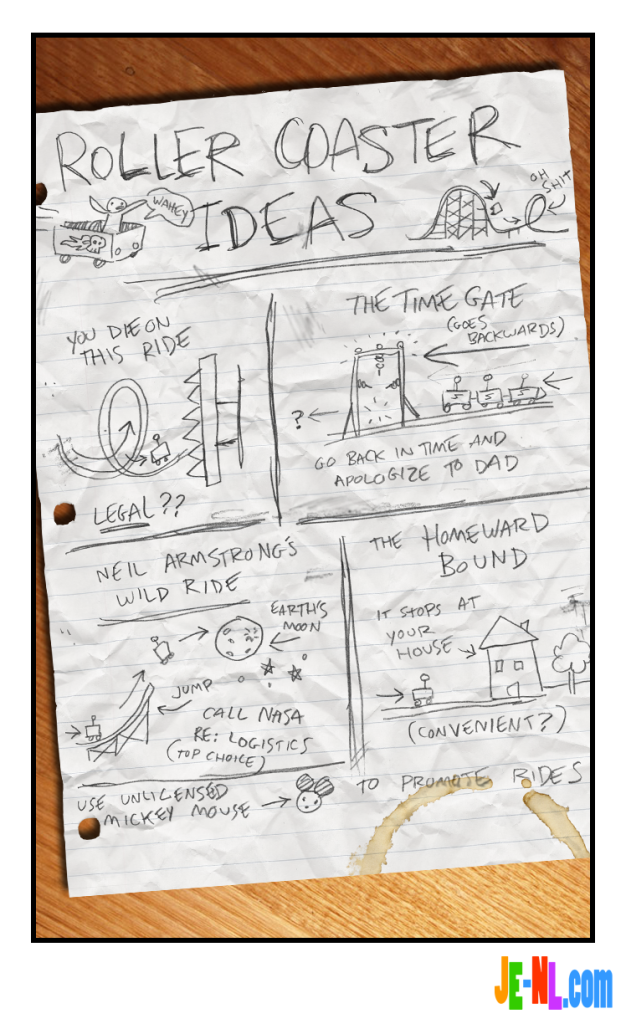 ROLLER COASTER
IDEAS
WAHEY
OH
SHIT
YOU DIE ON
THIS RIDE
LEGAL??
THE TIME GATE
(GOES
BACKWARDS)
?
GO BACK IN TIME AND
APOLOGIZE TO DAD
NEIL ARMSTRONG'S
WILD RIDE
EARTH'S
MOON
JUMP
CALL NASA
RE: LOGISTICS
(TOP CHOICE)
THE HOMEWARD
BOUND
IT STOPS AT
YOUR
HOUSE
(CONVENIENT?)
USE UNLICENSED
MICKEY MOUSE
TO PROMOTE RIDES
JE-NL.com